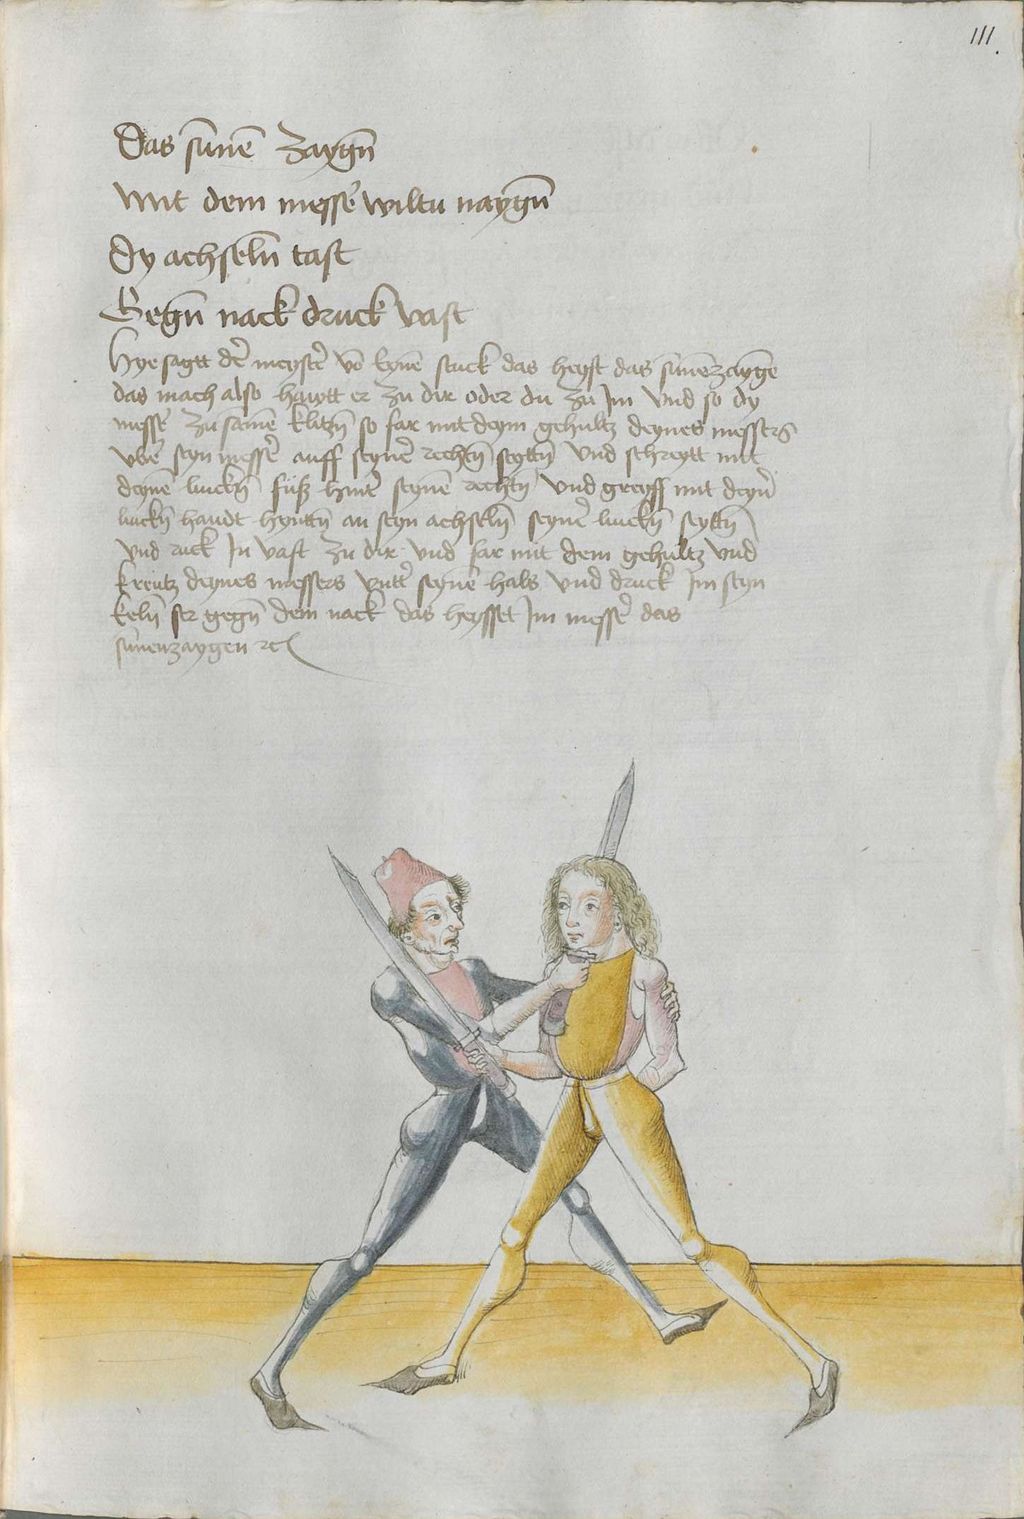 111.
Das sunē Zaygn̄
Mit dem messē wiltu naygn̄
Dy achseln̄ tast
Gegn̄ nack druck vast
Hye sagtt dē meystē vō eynē stuck das heyst das sunēzaygē
das mach also hawtt er zu dir oder du zu Im Vnd so dy
messē zu samē klitzn̄ so far mit deym gehultz deynes messers
vbē seyn messē auff seynē rechtn̄ seyttn̄ vnd schreytt mit
deynē linckn̄ fuß hintē seynē rechtn̄ vnd greyff mit deyn̄
linckn̄ handt hynttn̄ an seyn achseln̄ seynē linckn̄ seyttn̄
vnd ruck In vast zu dir vnd far mit dem gehultz vnd
kreutz deynes messers vnttē seynē hals vnd druck Im seyn
keln̄ ser gegn̄ dem nack das heysset Im messē das
sunenzaygen ⁊c